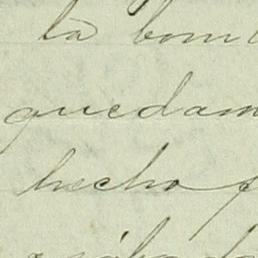 la bom
quedam
hecho p